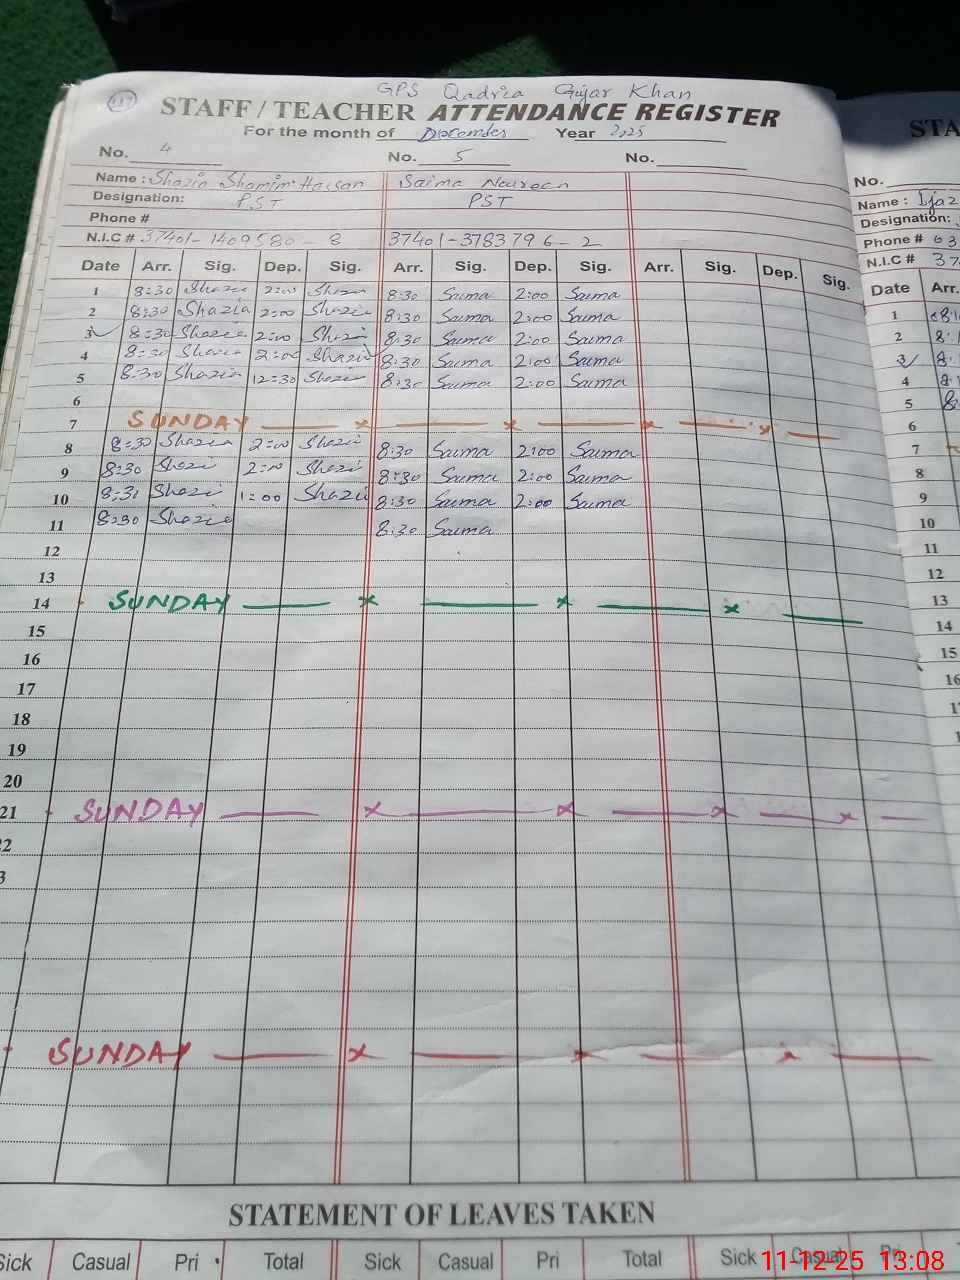 GPS Qadria Gujar Khan
117
STAFF / TEACHER ATTENDANCE REGISTER
For the month of December Year 2025
No. 4 No. 5 No.
Name : Shazia Shamim Hassan Saima Noureen
Designation: PST PST
Phone #
N.I.C # 37401-1409580-8 37401-3783796-2
Date Arr. Sig. Dep. Sig. Arr. Sig. Dep. Sig. Arr. Sig. Dep. Sig.
1 8:30 Shazia 2:00 Shazia 8:30 Saima 2:00 Saima
2 8:30 Shazia 2:00 Shazia 8:30 Saima 2:00 Saima
3 8:30 Shazia 2:00 Shazia 8:30 Saima 2:00 Saima
4 8:30 Shazia 2:00 Shazia 8:30 Saima 2:00 Saima
5 8:30 Shazia 12:30 Shazia 8:30 Saima 2:00 Saima
6
7 SUNDAY
8 8:30 Shazia 2:00 Shazia 8:30 Saima 2:00 Saima
9 8:30 Shazi 2:00 Shazi 8:30 Saima 2:00 Saima
10 8:31 Shazi 1:00 Shazi 8:30 Saima 2:00 Saima
11 8:30 Shazia 8:30 Saima
12
13
14 SUNDAY
15
16
17
18
19
20
21 SUNDAY
22
3
SUNDAY
STATEMENT OF LEAVES TAKEN
Sick Casual Pri Total Sick Casual Pri Total Sick Casual Pri
STA
No.
Name : Ijaz
Designation:
Phone # 03
N.I.C # 37
Date Arr.
1 8:
2 8:
3 8:
4 8:
5 8
6
7
8
9
10
11
12
13
14
15
16
11-12-25 13:08